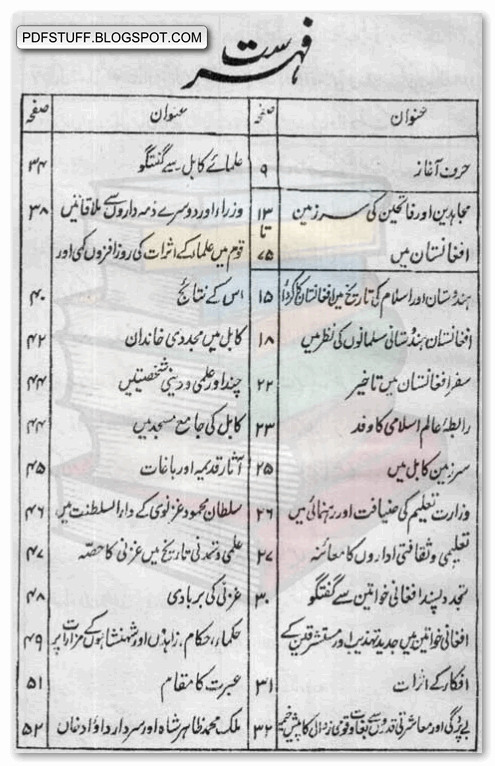 PDFSTUFF.BLOGSPOT.COM
فہرست
عنوان صفحہ
حرف آغاز ۹
مجاہدین اور فاتحین کی سرزمین ۱۳
تا
افغانستان میں ۷۵
ہندوستان اور اسلام کی تاریخ میں افغانستان کا کردار ۱۵
افغانستان ہندوستانی مسلمانوں کی نظر میں ۱۸
سفر افغانستان میں تاخیر ۲۲
رابطۂ عالم اسلامی کا وفد ۲۳
سرزمین کابل میں ۲۵
وزارت تعلیم کی ضیافت اور رہنمائی میں ۲۶
تعلیمی و ثقافتی اداروں کا معائنہ ۲۷
تجدد پسند افغانی خواتین سے گفتگو ۳۰
افغانی خواتین میں جدید تہذیب اور مستشرقین کے
افکار کے اثرات ۳۱
بے پردگی اور معاشرتی قدروں سے بغاوت قومی زوال کا پیش خیمہ ۳۲
عنوان صفحہ
علمائے کابل سے گفتگو ۳۴
وزراء اور دوسرے ذمہ داروں سے ملاقاتیں ۳۸
قوم میں علماء کے اثرات کی روز افزوں کمی اور
اس کے نتائج ۴۰
کابل میں مجددی خاندان ۴۲
چند اور علمی و دینی شخصیتیں ۴۴
کابل کی جامع مسجد میں ۴۴
آثار قدیمہ اور باغات ۴۵
سلطان محمود غزنوی کے دار السلطنت میں ۴۶
علمی و تمدنی تاریخ میں غزنی کا حصہ ۴۷
غزنی کی بربادی ۴۸
حکماء، حکام، زاہدوں اور شہنشاہوں کے مزارات پر ۴۹
عبرت کا مقام ۵۱
ملک محمد ظاہر شاہ اور سردار داؤد خاں ۵۲